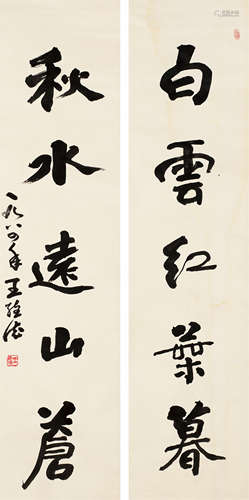 白雲紅葉暮
秋水遠山蒼
一九八四年 王維德